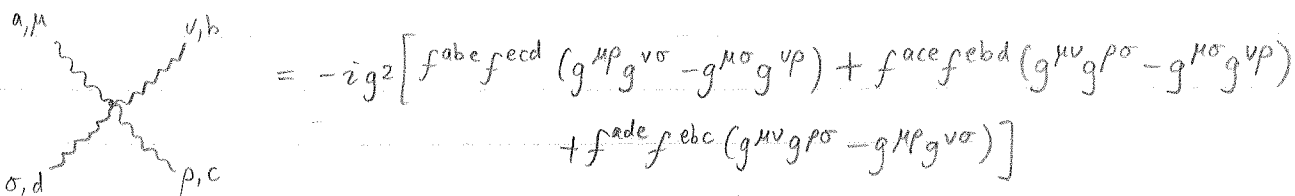 a,μ ν,b
= -ig²[f^{abe}f^{ecd}(g^{μρ}g^{νσ}-g^{μσ}g^{νρ})+f^{ace}f^{ebd}(g^{μν}g^{ρσ}-g^{μσ}g^{νρ})
+f^{ade}f^{ebc}(g^{μν}g^{ρσ}-g^{μρ}g^{νσ})]
σ,d ρ,c